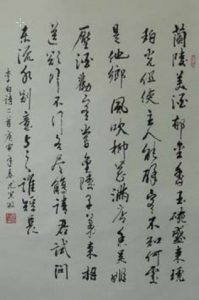 蘭陵美酒郁金香玉碗盛來琥
珀光但使主人能醉客不知何處
是他鄉 風吹柳花滿店香吳姬
壓酒勸客嘗金陵子弟來相
送欲行不行各盡觴請君試問
東流水別意與之誰短長
李白诗二首庚寅年